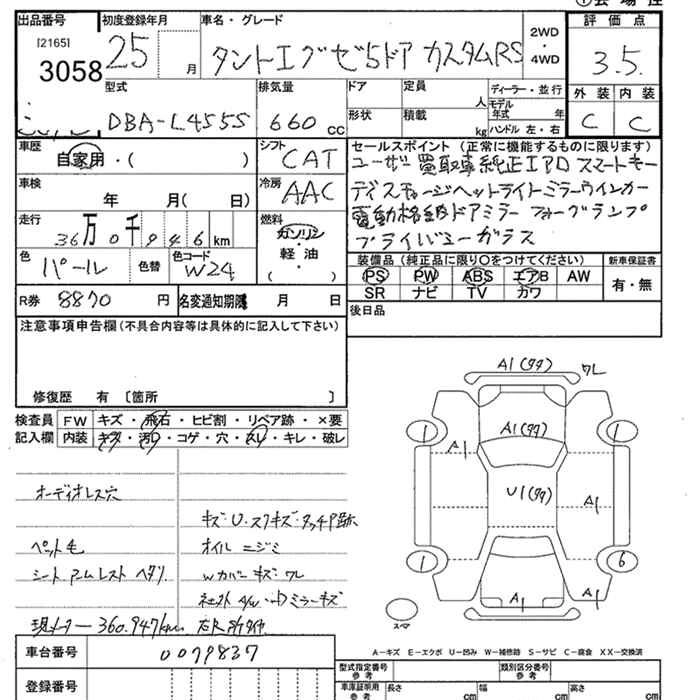 出品番号 初度登録年月 車名・グレード 評価点
[2165] 3058 25 月 タントエグゼ5ドア カスタムRS 2WD・4WD 3.5
型式 排気量 ドア 定員 人 ディーラー・並行 外装 内装
DBA-L455S 660 cc 形状 積載 kg モデル年式 年 ハンドル 左・右 C C
車歴 自家用・( ) シフト CAT セールスポイント (正常に機能するものに限ります)
ユーザー買取車 純正エアロ スマートキー
車検 年 月( 日) 冷房 AAC ディスチャージヘッドライト ミラーウインカー
走行 36万0千946km 燃料 ガソリン・軽油・( ) 電動格納ドアミラー フォグランプ
プライバシーガラス
色 パール 色替 色コード W24 装備品 (純正品に限り○をつけてください) 新車保証書
PS PW ABS エアB AW 有・無
SR ナビ TV カワ
R券 8870 円 名変通知期限 月 日 後日品
注意事項申告欄(不具合内容等は具体的に記入して下さい)
修復歴 有 〔箇所 〕
検査員 FW キズ・飛石・ヒビ割・リペア跡・×要
記入欄 内装 キズ・汚レ・コゲ・穴・スレ・キレ・破レ
オーディオレス穴
キズ・U・スリキズ・タッチP跡
ペット毛 オイルニジミ
シート アームレスト ヘタリ Wカバー キズ・ワレ
社外A/W ミラーキズ
現メーター360.947km
車台番号 0079837
登録番号
A1(タタ) ワレ
A1(タタ)
A1
U1(タタ)
A1
A1
A1
1
1
1
6
スペア
A-キズ E-エクボ U-凹み W-補修跡 S-サビ C-腐食 XX-交換済
型式指定番号 参考 類別区分番号 参考
車庫証明用 参考 長さ cm 幅 cm 高さ cm